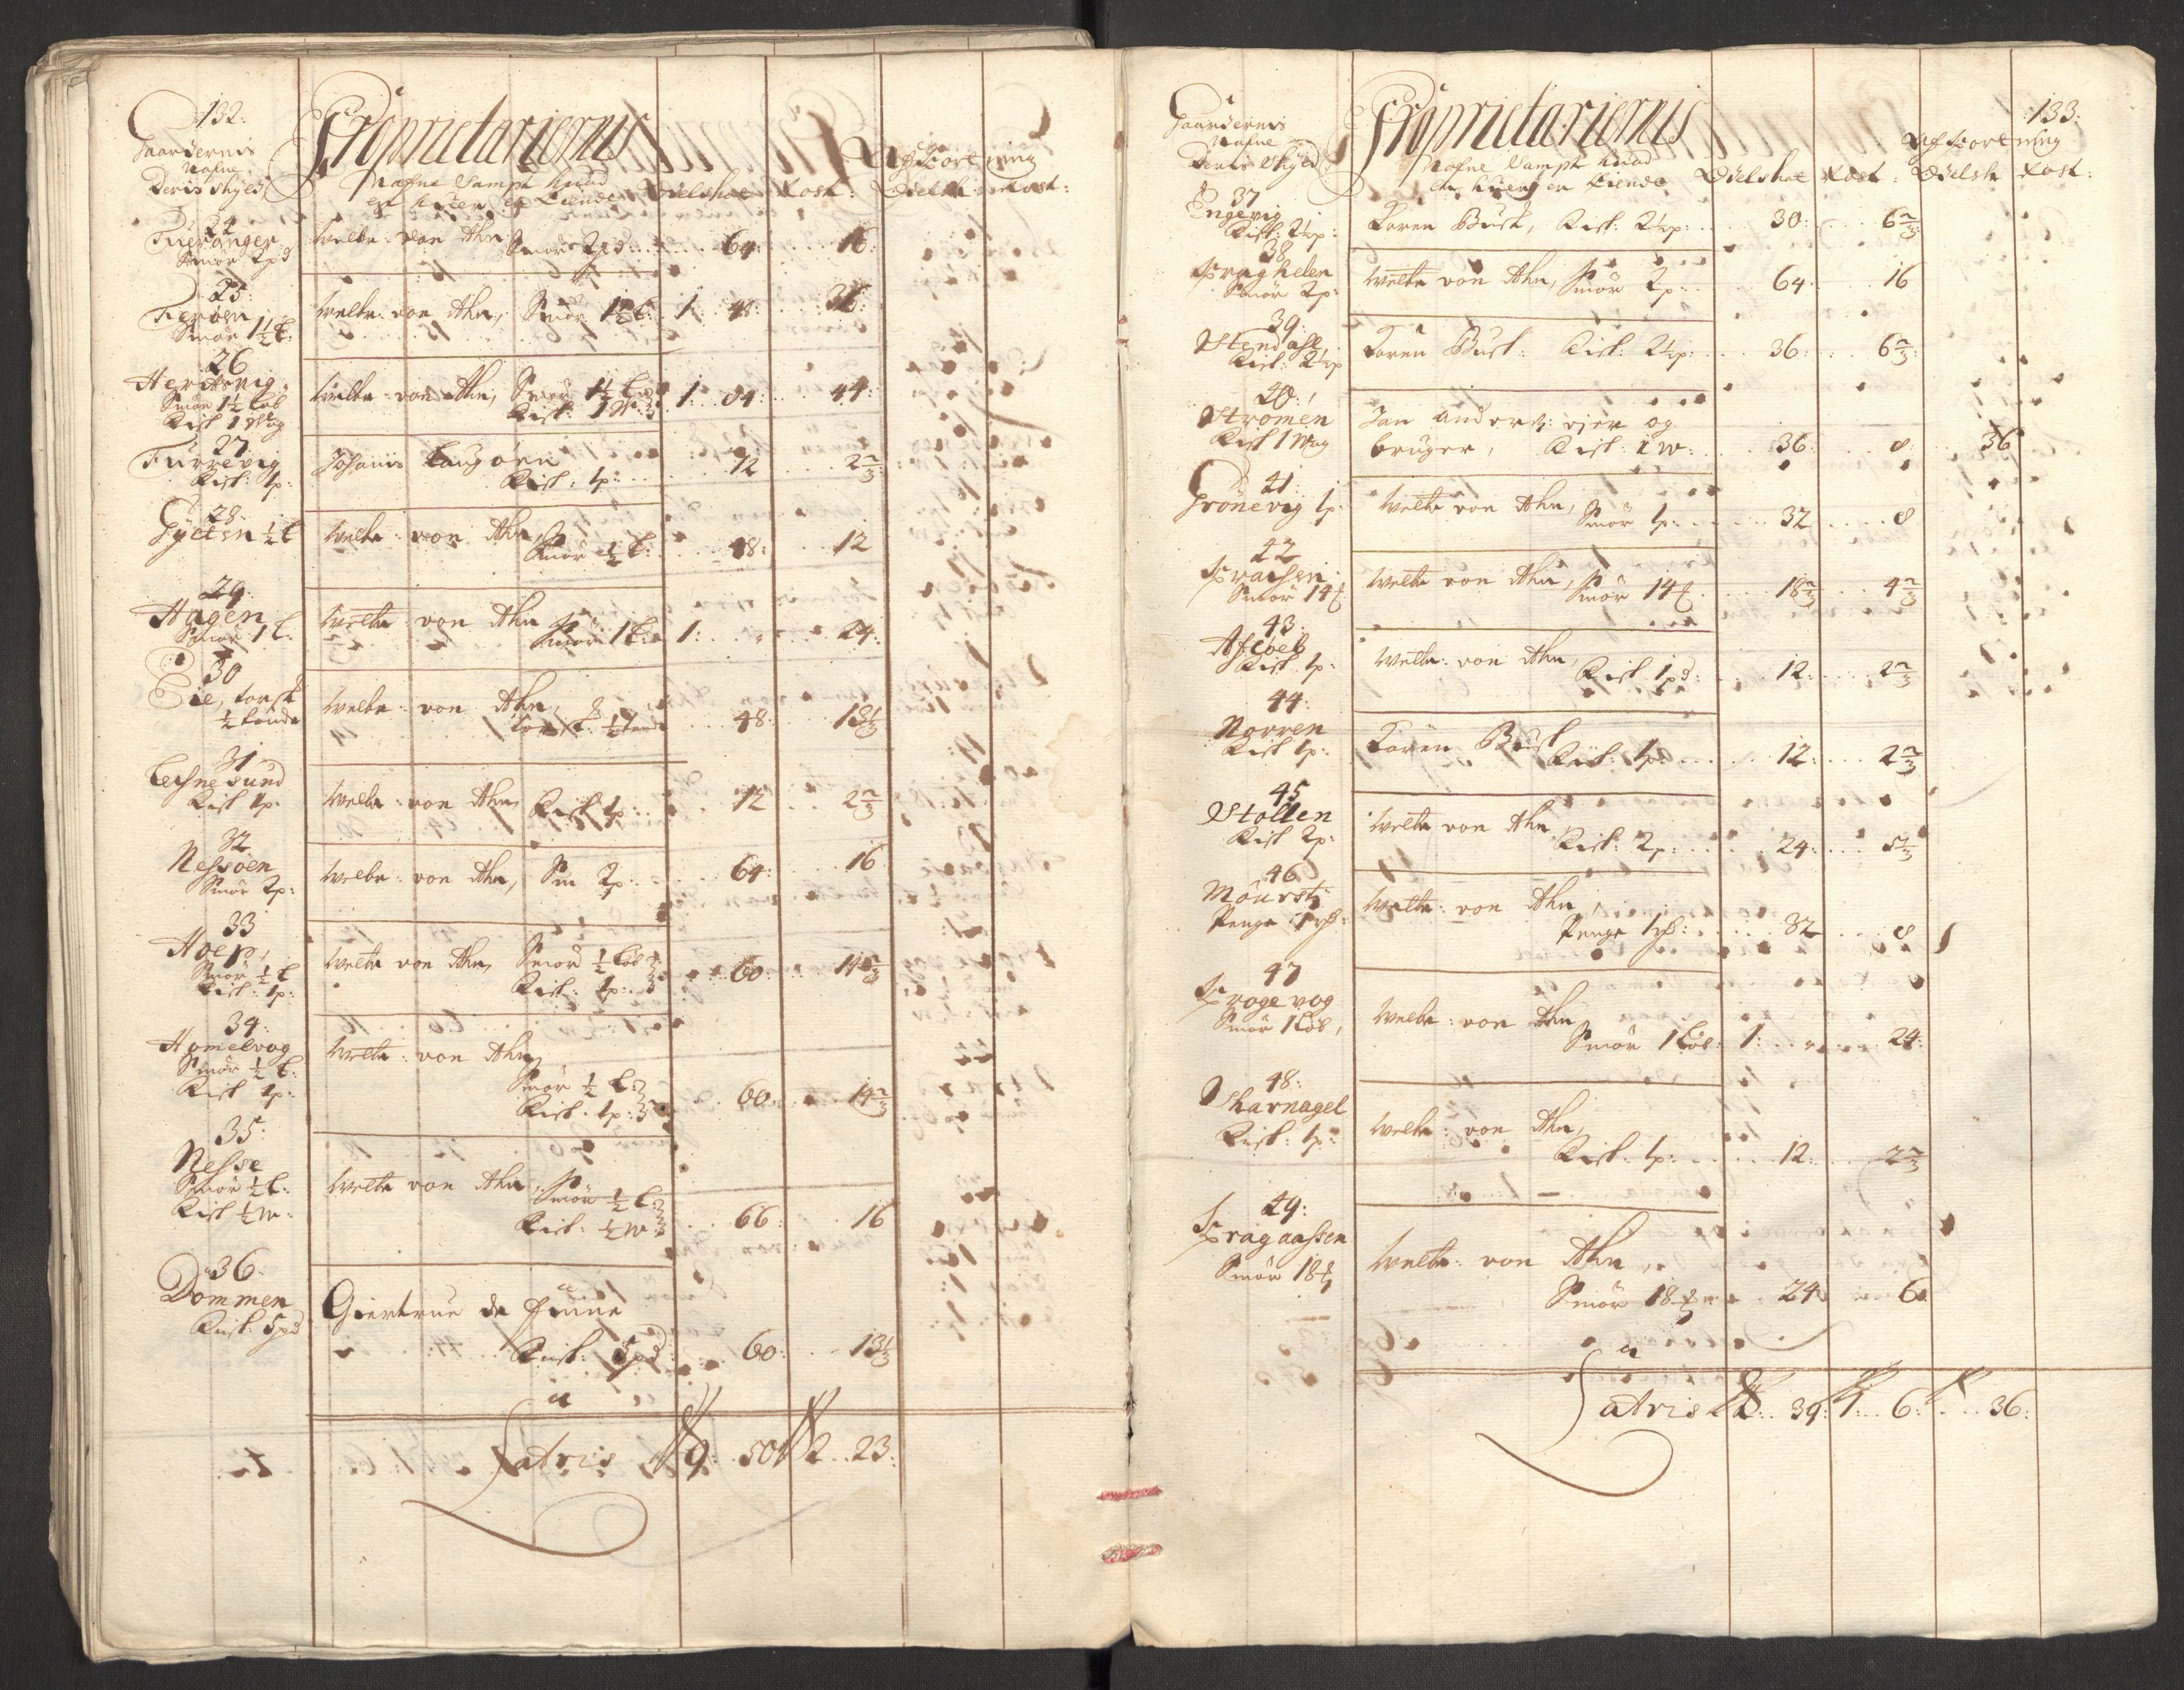 132:
Gaardernis
Nafne
Deris Skyed
Proprietariernis
Nafne Sampt huad
er huer er Eiende
Odelskat
Kost:
Afkortning
Odelsk
Kost:
24
Fueranger
Smör 2pd
welbr: von Ahn
Smör 2pd: 64: 16:
25:
Tieröen,
Smör 1½ L:
welbr: von Ahn, Smör 1½ L: 1: 48: 36:
26
Herdsvig,
Smör 1½ Löb
Fisk 1 Wog
welbr: von Ahn, Smör 1½ L
Fisk: 1 W: 1: 84: 44:
27
Furrevig
Fisk: 1p:
Johanis Laugöen
Fisk: 1p: 12 2⅔
28:
Gyeten ½ L
welbr: von Ahn,
Smör ½ L: 48: 12
29:
Hagen
Smör 1 L:
welbr: von Ahn
Smör 1 L: 1: " 24:
30
Eie, torsk
½ tönde
welbr: von Ahn,
torsk: ½ tönde 48: 13⅓
31
Leisnesund
Fisk 1p:
welbr: von Ahn, Fisk: 1p: 12 2⅔
32
Nessöen
Smör 2p:
welbr: von Ahn, Sm 2p: 64: 16
33
Höep,
Smör ½ L
Fisk: 1p:
welbr von Ahn, Smör ½ Löb
Fisk: 1p: 60: 14⅔
34:
Homelvog
Smör ½ L:
Fisk 1p:
welbr: von Ahn,
Smör ½ L:
Fisk: 1p: 60: 14⅔
35:
Nesse
Smör ½ L:
Fisk ½ W:
welbr von Ahn, Smör ½ L:
Fisk: ½ W: 66: 16
36:
Dommen
Fisk: 5pd
Giertrue de Fiine
Fisk: 5pd 60: 13⅓
Latris 9: 50 2 23:
133:
Gaardernis
Nafne
Deris Skyed
Proprietariernis
Nafne Sampt huad
er huer er Eiende
Odelskat Kost:
Afkortning
Odelsk Kost:
37
Engevig
Fisk: 2½p:
Karen Busk, Fisk: 2½p: 30: 6⅔
38
Kraghelen
Smör 2p:
welbr von Ahn, Smör 2p: 64: 16
39:
Stendahl
Fisk: 2½p
Karen Busk: Fisk: 2½p: 36: 6⅔
40:
Strömen
Fisk 1 Wog
Jan anders: eier og
bruger, Fisk: 1 W: 36: 8: 36
41:
Grönevig 1p:
welbr von Ahn, Smör 1p: 32 8
42
Smör 14
welbr von Ahn, Smör 14 18⅔ 4⅔
43:
Aflöeb
Fisk 1p:
welbr: von Ahn, Fisk 1pd: 12: 2⅔
44:
Norren
Fisk 1p:
Karen Busk
Fisk: 1p: 12: 2⅔
45
Stollen
Fisk 2p:
welbr von Ahn
Fisk: 2p: 24: 5⅓
46
Penge
welbr: von Ahn,
Penge 32 8
47
Krogevog
Smör 1 Löb,
welbr: von Ahn
Smör 1 Löb: 1: " 24:
48:
Skarnagel
Fisk: 1p:
welbr: von Ahn,
Fisk: 1p: 12: 2⅔
49:
Kragaassen
Smör 18
welbr: von Ahn,
Smör 18 24: 6
Latris 2: 39: 1: 6: 36: